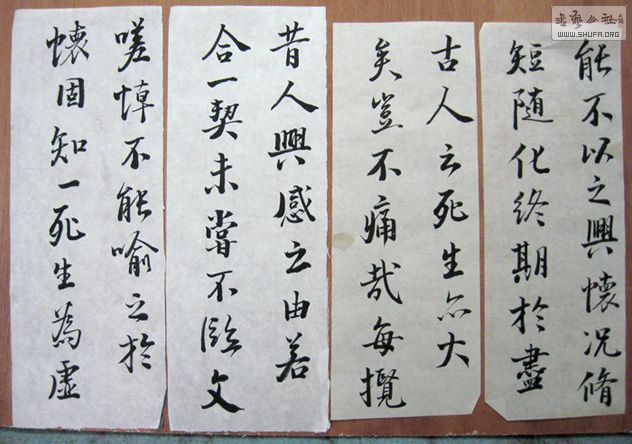 能不以之興懷况脩
短隨化終期於盡
古人云死生亦大
矣豈不痛哉每攬
昔人興感之由若
合一契未嘗不臨文
嗟悼不能喻之於
懷固知一死生為虛
書藝公社
WWW.SHUFA.ORG